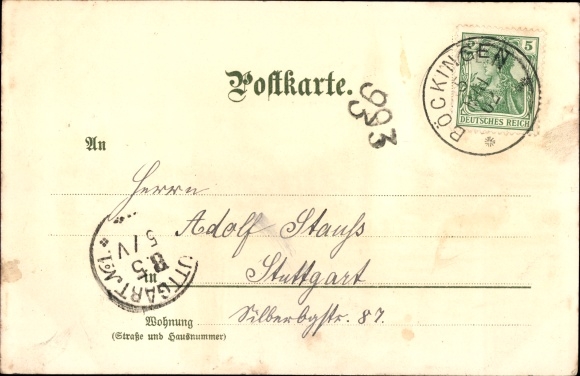 5
DEUTSCHES REICH
BÖCKINGEN
Postkarte.
993
An
Herrn
Adolf Stauss
Stuttgart
STUTTGART No 1.
5/V
Silberbgstr. 87.
Wohnung
(Straße und Hausnummer)